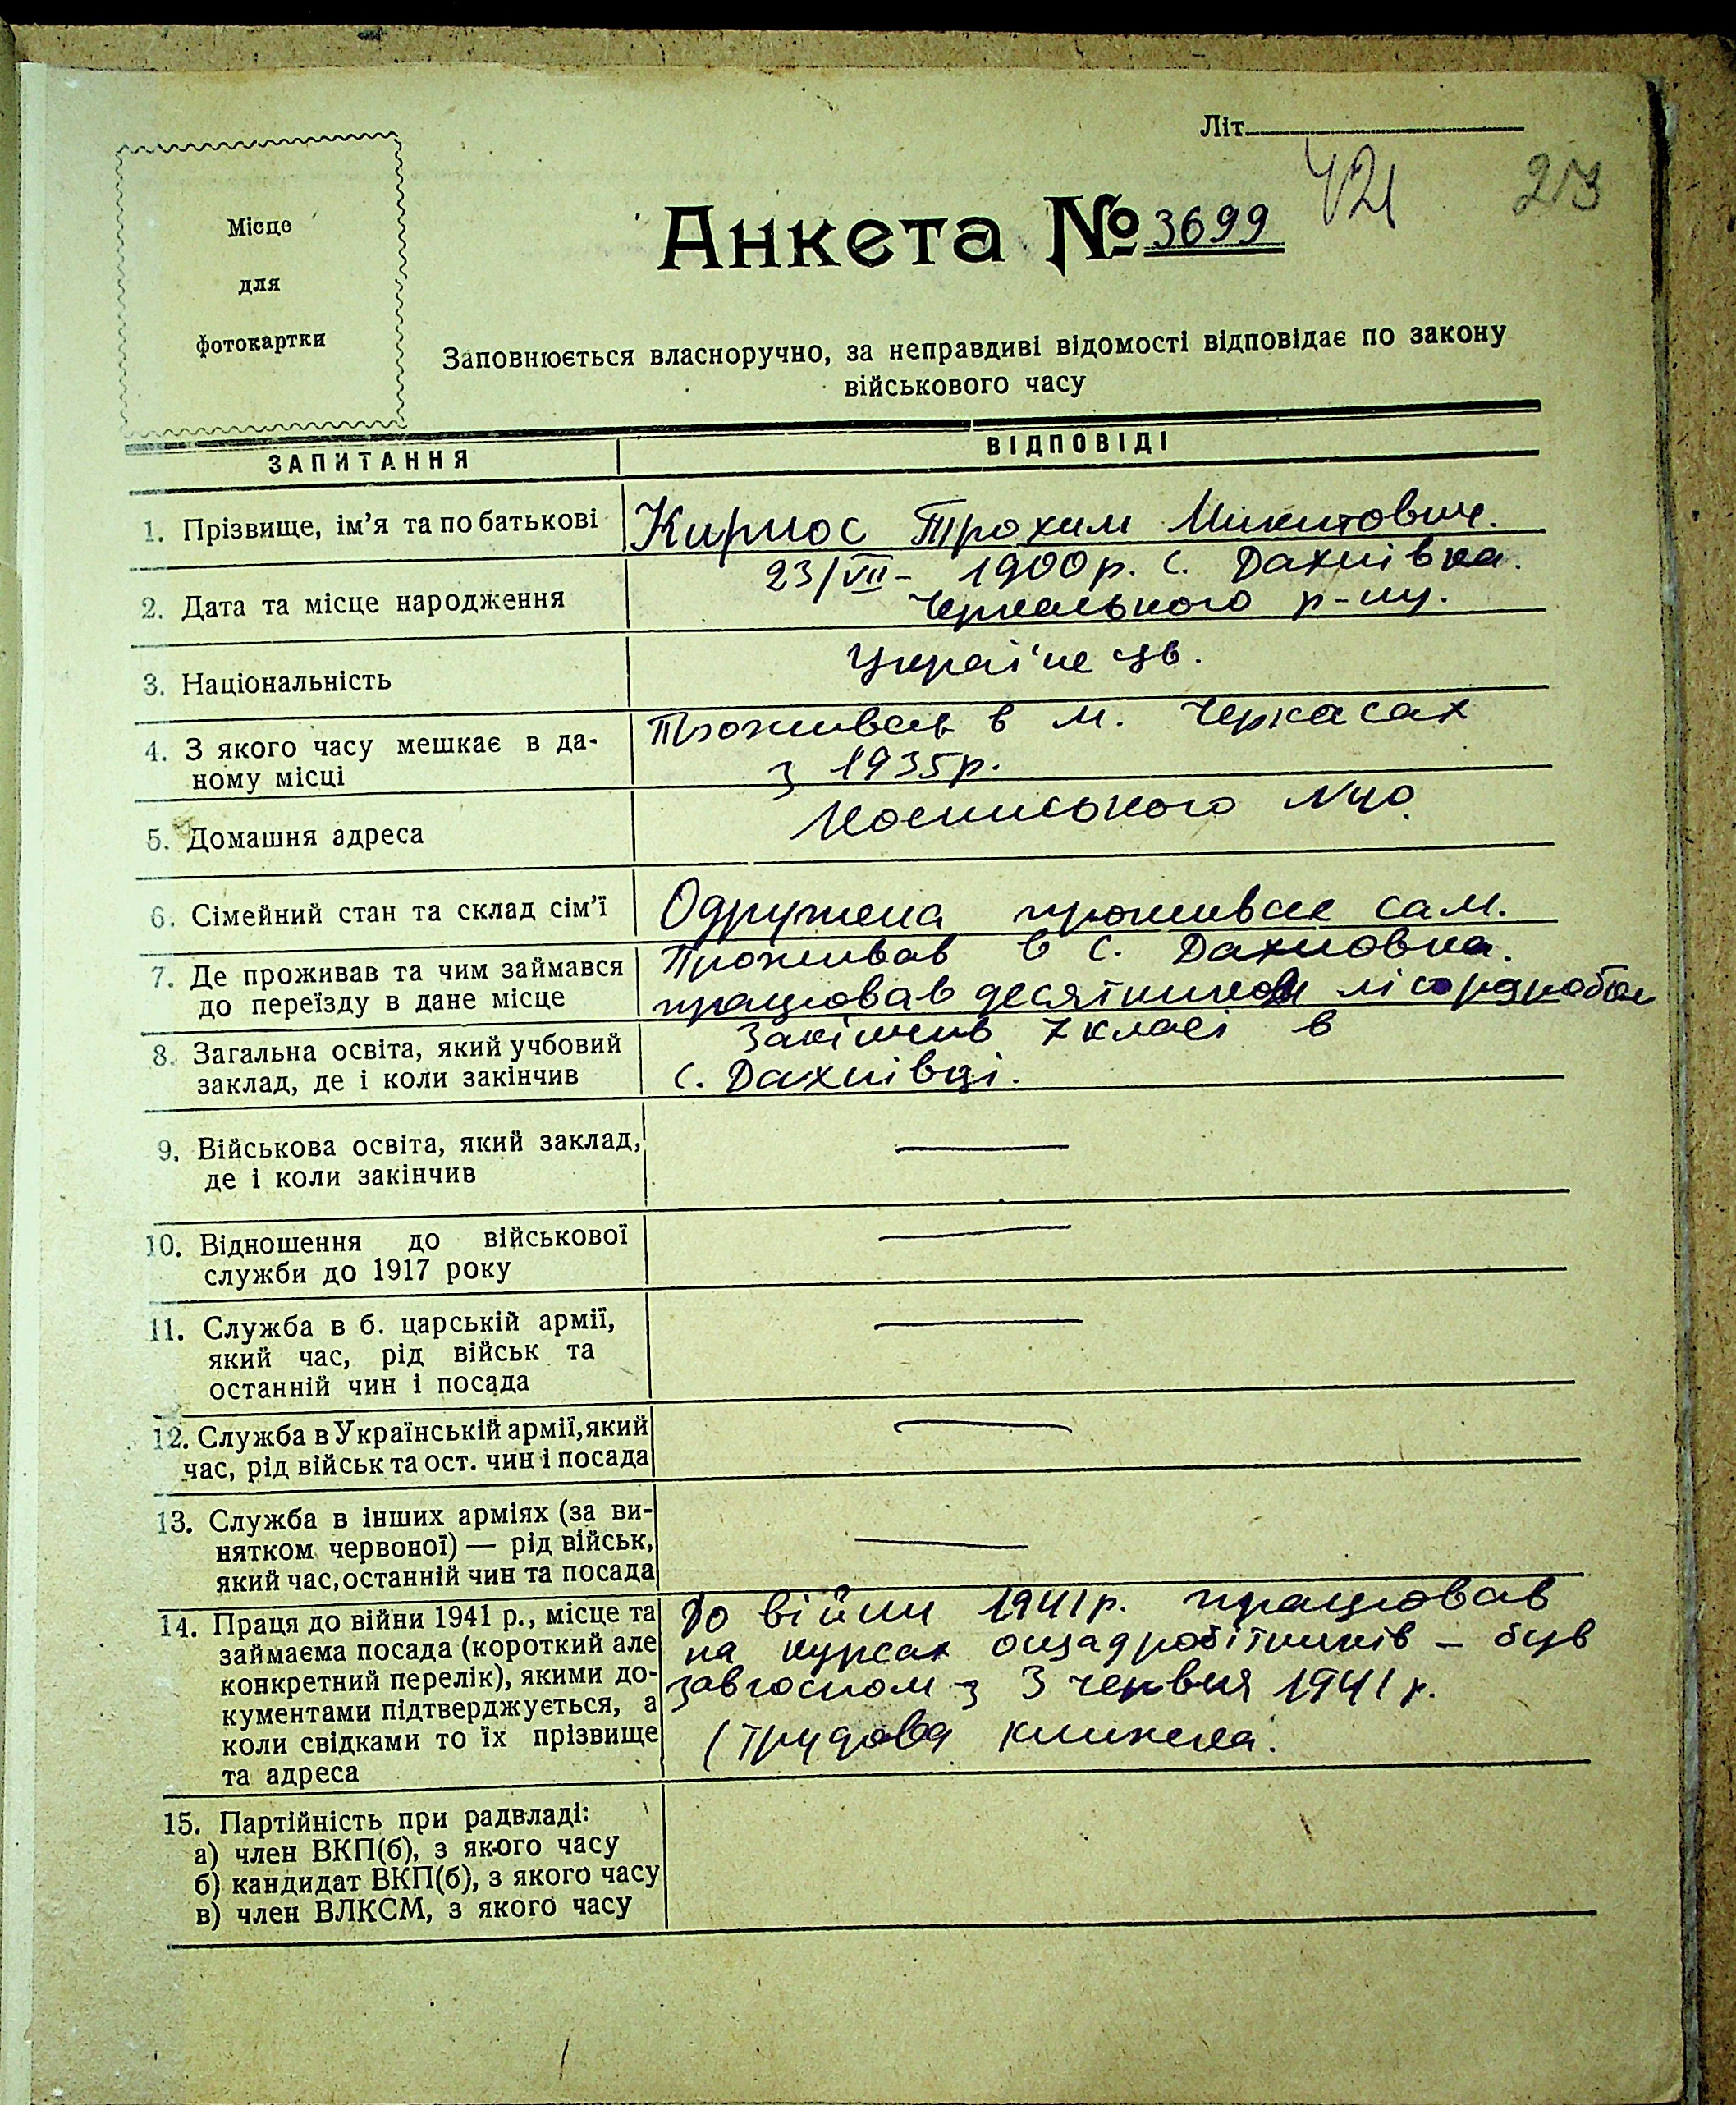 Літ
421
23
Місце
для
фотокартки
Анкета № 3699
Заповнюється власноручно, за неправдиві відомості відповідає по закону
військового часу
ЗАПИТАННЯ
ВІДПОВІДІ
1. Прізвище, ім'я та по батькові
Кирпос Трохим Микитович.
2. Дата та місце народження
23/VII - 1900 р. с. Дахнівка.
Черкаського р-ну.
3. Національність
Українець.
4. З якого часу мешкає в да-
ному місці
Проживає в м. Черкасах
з 1935р.
5. Домашня адреса
№ 40.
6. Сімейний стан та склад сім'ї
Одружена проживає сам.
7. Де проживав та чим займався
до переїзду в дане місце
Проживав в с. Дахновка.
працював десятником
8. Загальна освіта, який учбовий
заклад, де і коли закінчив
Закінчив 7 класі в
с. Дахнівці.
9. Військова освіта, який заклад,
де і коли закінчив
—
10. Відношення до військової
служби до 1917 року
—
11. Служба в б. царській армії,
який час, рід військ та
останній чин і посада
—
12. Служба в Українській армії, який
час, рід військ та ост. чин і посада
—
13. Служба в інших арміях (за ви-
нятком червоної) — рід військ,
який час, останній чин та посада
—
14. Праця до війни 1941 р., місце та
займаєма посада (короткий але
конкретний перелік), якими до-
кументами підтверджується, а
коли свідками то їх прізвище
та адреса
До війни 1941р. працював
на курсах ощадробітників – був
завгоспом з 3 червня 1941 р.
(Трудова книжка.
15. Партійність при радвладі:
а) член ВКП(б), з якого часу
б) кандидат ВКП(б), з якого часу
в) член ВЛКСМ, з якого часу